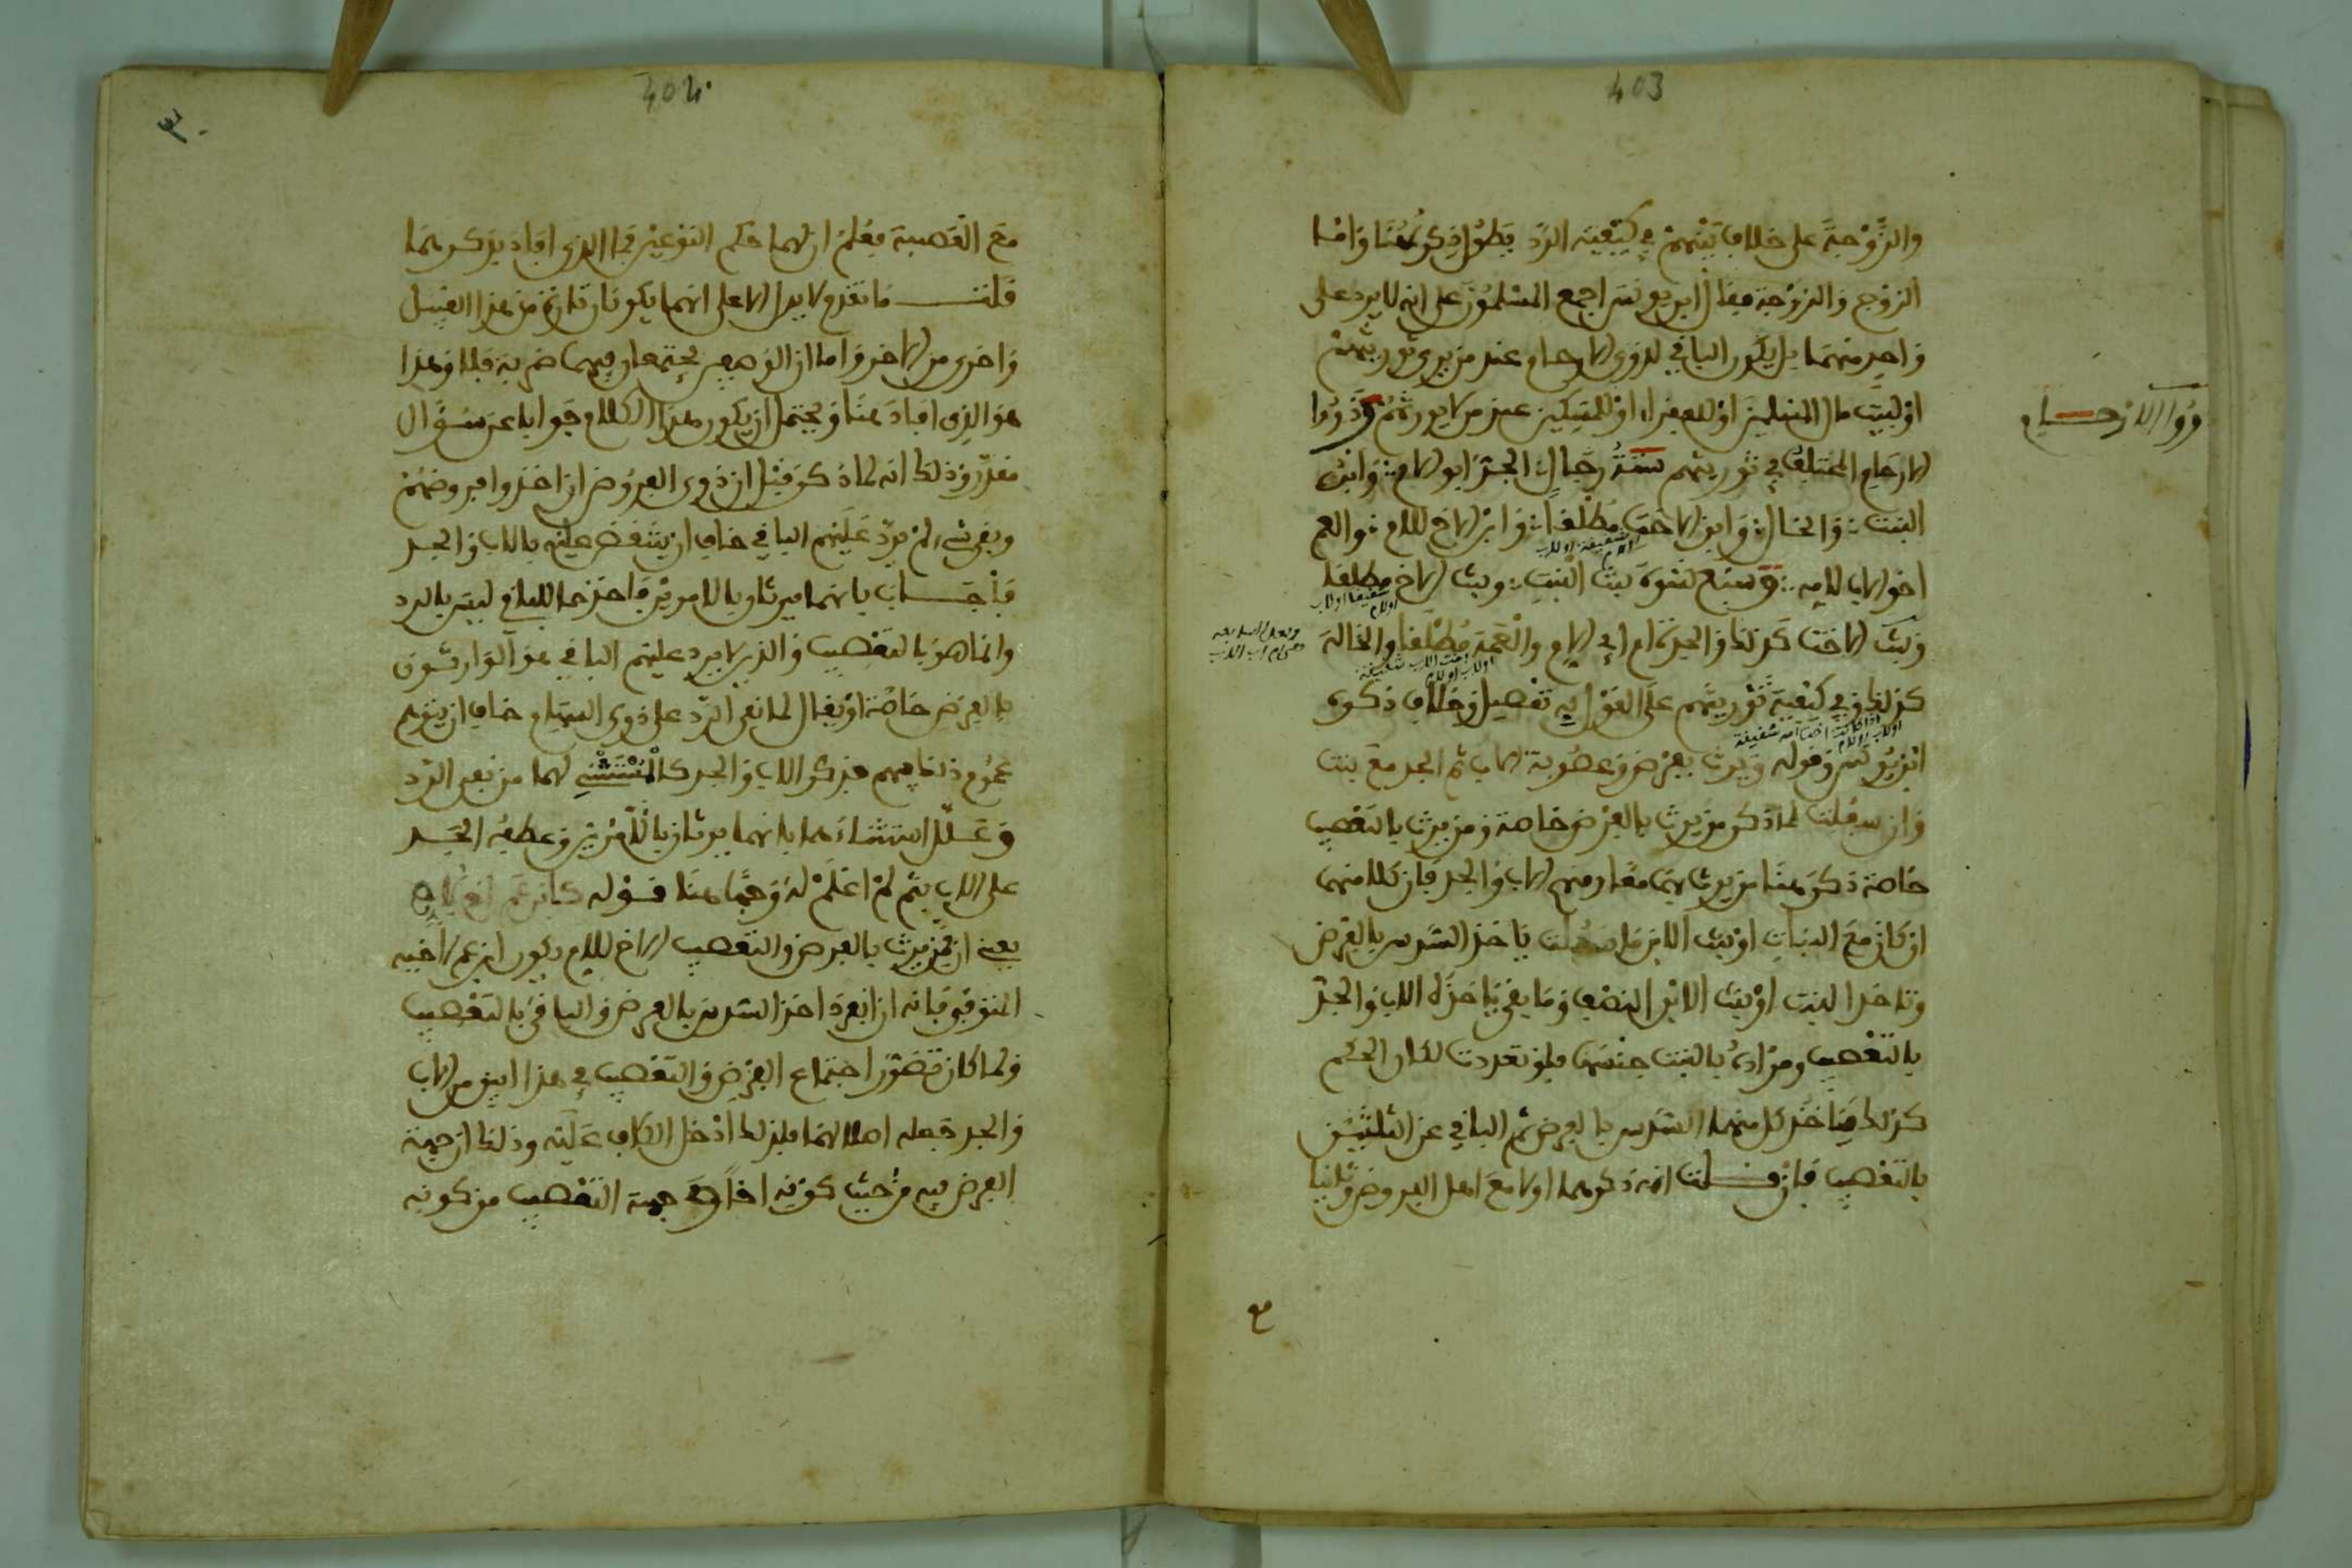 403
والزوجة على خلاف بينهم في كيفية الرد يطول ذكره هنا واما
الزوج والزوجة فقال ابن يونس اجمع المسلمون على انه لا يرد على
واحد منهما بل يكون الباقي لذوي الارحام عند من يرى توريثهم
او لبيت مال المسلمين او للفقراء او للمساكين عند من لا يورثهم وذووا
ذووا الارحام
الارحام المختلف في توريثهم ستة رجال الجد ابو الام وابن
البنت والخال وابن الاخت مطلقا وابن الاخ للام والعم
شقيقة او لاب او لام
اخو الاب لامه وسبع نسوة بنت البنت وبنت الاخ مطلقا
شقيقا او لاب او للام
وبنت الاخت كذلك والجدة ام اب الام والعمة مطلقا والخالة
اخت الاب شقيقة او لاب او للام
كذلك وفي كيفية توريثهم على القول به تفصيل وخلاف ذكره
اذا كانت اخت امه شقيقة او لاب او للام
ابن يونس وقوله ويرث بفرض وعصوبة الاب ثم الجد مع بنت
وان سفلت لما ذكر من يرث بالفرض خاصة ومن يرث بالتعصيب
خاصة ذكر هنا من يرث بهما معا ومنهم الاب والجد فان كلا منهما
ان كان مع البنات او بنت الابن وما سفلت ياخذ السدس بالفرض
وتاخذ البنت او بنت الابن النصف وما بقي ياخذه الاب والجد
بالتعصيب ومراده بالبنت جنسها فلو تعددت لكان الحكم
كذلك فياخذ كل منهما السدس بالفرض ثم الباقي عن الثلثين
بالتعصيب فان قلت انه ذكرهما اولا مع اهل الفروض وثانيا
مع
404
٣٠
مع العصبة فعلم ان لهما حكم النوعين فما الذي افاد بذكرهما
قلت ما تقدم لا يدل الا على انهما يكونان تارة من هذا القبيل
واخرى من الاخر واما ان الوصفين يجتمعان فيهما ضربة فلا وهذا
هو الذي افاد هنا ويحتمل ان يكون هذا الكلام جوابا عن سؤال
مقدر وذلك انه لما ذكر قبل ان ذوي الفروض اذا اخذوا فروضهم
وبقي شيء لم يرد عليهم الباقي خاف ان ينتقض عليه بالاب والجد
فاجاب بانهما يرثان بالامرين فاخذهما للباقي ليس بالرد
وانما هو بالتعصيب والذين لا يرد عليهم الباقي هو الوارثون
بالفرض خاصة او يقال لما نفى الرد على ذوي السهام خاف ان يتوهم
عموم ذلك فيهم فذكر الاب والجد كالمستثني لهما من نفي الرد
وعلل استثناءهما بانهما يرثان بالامرين وعطفه الجد
على الاب بثم لم اعلم له وجها هنا قوله كابن عم اخ لام
يعني ان ممن يرث بالفرض والتعصيب الاخ للام يكون ابن عم لاخيه
المتوفى فانه اذا انفرد اخذ السدس بالفرض والباقي بالتعصيب
ولما كان تصور اجتماع الفرض والتعصيب في هذا ابين من الاب
والجد جعله اصلا لهما فلذلك ادخل الكاف عليه وذلك ان جهة
الفرض فيه من حيث كونه اخا وجهة التعصيب من كونه